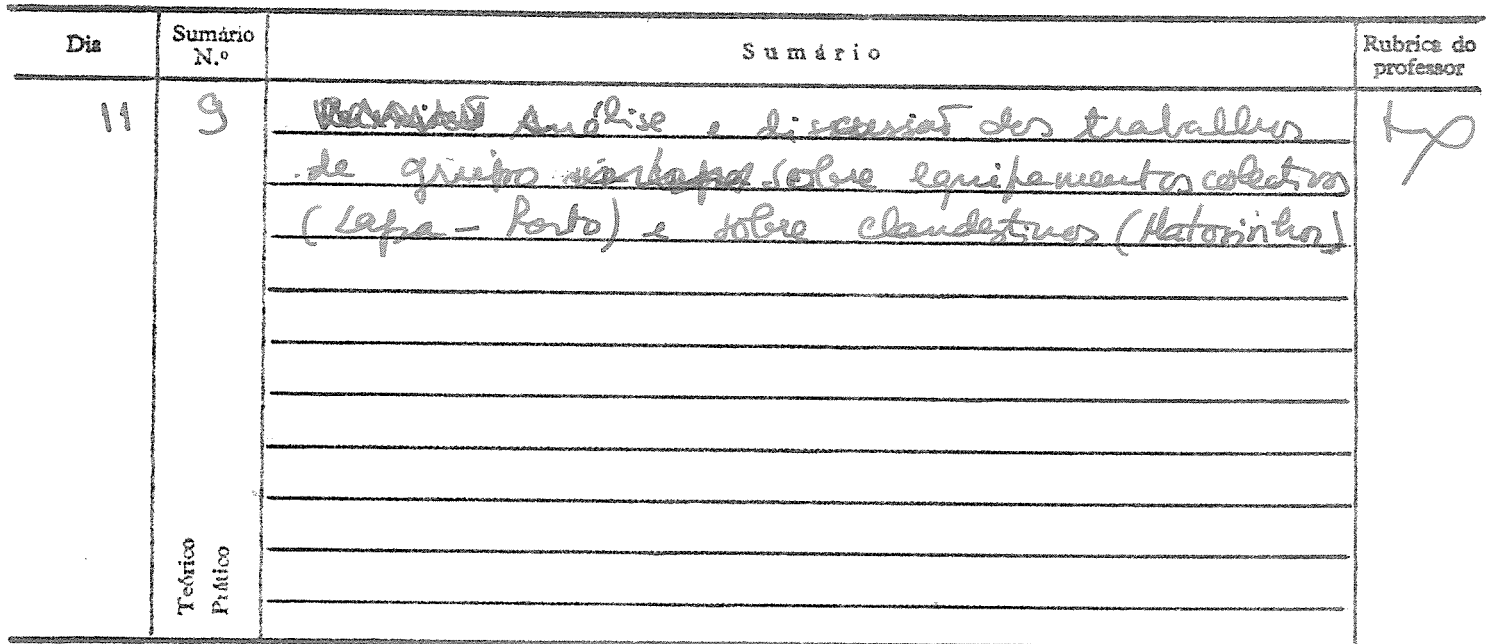 Dia
Sumário N.º
Sumário
Rubrica do professor
11
9
Análise e discussão dos trabalhos
de grupo sobre equipamentos colectivos
(Lapa - Porto) e sobre clandestinos (Matosinhos)
Teórico
Prático